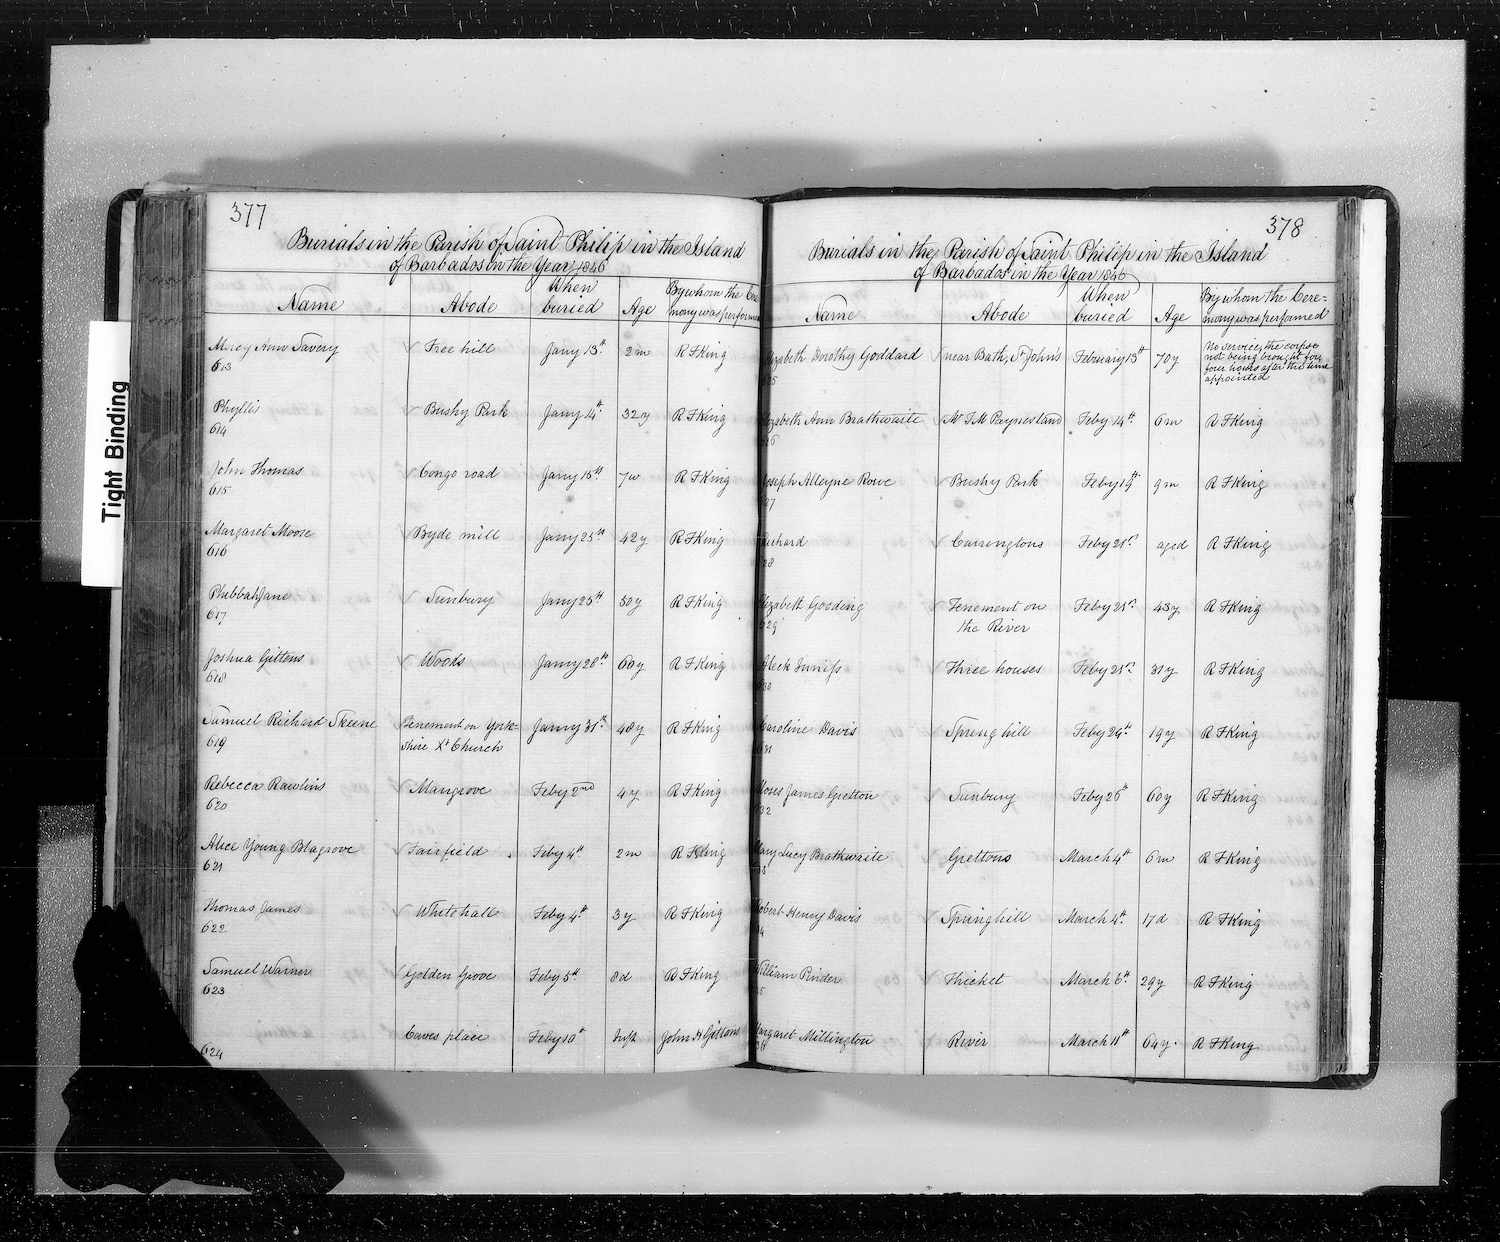 Tight Binding
377
Burials in the Parish of Saint Philip in the Island
of Barbados in the Year 1846
Name Abode When buried Age By whom the Cere-
mony was performed
Mercy Ann Savery Free hill Jany 13th 2m R F King
613
Phyllis Bushy Park Jany 14th 32y R F King
614
John Thomas Congo road Jany 15th 7w R F King
615
Margaret Moose Byde mill Jany 25th 42y R F King
616
Phibbah Jane Sunbury Jany 25th 50y R F King
617
Joshua Gittens Woods Jany 28th 60y R F King
618
Samuel Richard Skeene Tenement on York- Jany 31st 48y R F King
619 shire Xt Church
Rebecca Rawlins Mangrove Feby 2nd 4y R F King
620
Alice Young Blagrove Fairfield Feby 4th 2m R F King
621
Thomas James Whitehall Feby 4th 3y R F King
622
Samuel Warner Golden Grove Feby 5th 8d R F King
623
Caves place Feby 10th Inft John H Gittens
624
378
Burials in the Parish of Saint Philip in the Island
of Barbados in the Year 1846
Name Abode When buried Age By whom the Cere-
mony was performed
lizabeth Dorothy Goddard near Bath, St John's February 13th 70y No service, the corpse
not being brought for
four hours after the time
appointed
25
lizabeth Ann Brathwaite Mr T M Paynes land Feby 14th 6m R F King
26
oseph Alleyne Rowe Bushy Park Feby 19th 9m R F King
27
Richard Carringtons Feby 21st aged R F King
28
lizabeth Gooding Tenement on Feby 21st 45y R F King
629 the River
leck Inniss Three houses Feby 21st 31y R F King
630
Caroline Davis Spring hill Feby 24th 19y R F King
631
Moses James Gretton Sunbury Feby 26th 60y R F King
32
Mary Lucy Brathwaite Grettons March 4th 6m R F King
33
obert Henry Davis Spring hill March 4th 17d R F King
4
William Pinder Thicket March 6th 29y R F King
5
Margaret Millington River March 11th 64y. R F King
36